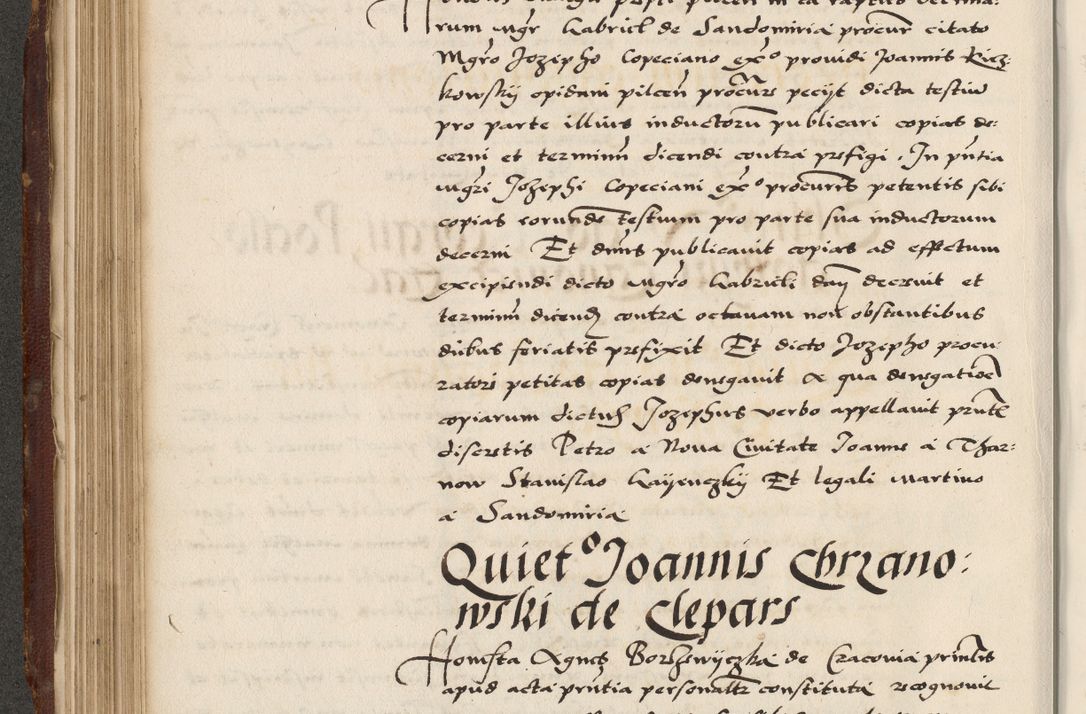 rum Mgr Gabriel de Sandomiria procur citato
Mgro Jozepho Copeciano exº providi Joannis Ricz-
kowskij opidani pilcen procurs pecijt dicta testiu
pro parte illius inductorū publicari copias de-
cerni et terminū dicendi contra prefigi. In pñtia
Mgri Jozephi Copeciani exº procuris petentis sibi
copias eorunde testium pro parte sua inductorum
decerni Et dnus publicavit copias ad effectum
excipiendi dicto Mgro Gabrieli dari decrevit et
terminū dicend contra octavam non obstantibus
diebus feriatis prefixit Et dicto Jozepho procu-
ratori petitas copias denegavit A qua denegatioe
copiarum dictus Jozephus verbo appellavit pñte
discretis Petro a Nova Civitate Joanne a Thar-
now Stanislao Gayewczkij Et legali Martino
a Sandomiria
Quietº Joannis Chrzano-
wski de Clepars
Honesta Agnes de Cracovia princlis
apud acta pñtia personaltr constituta recognovit